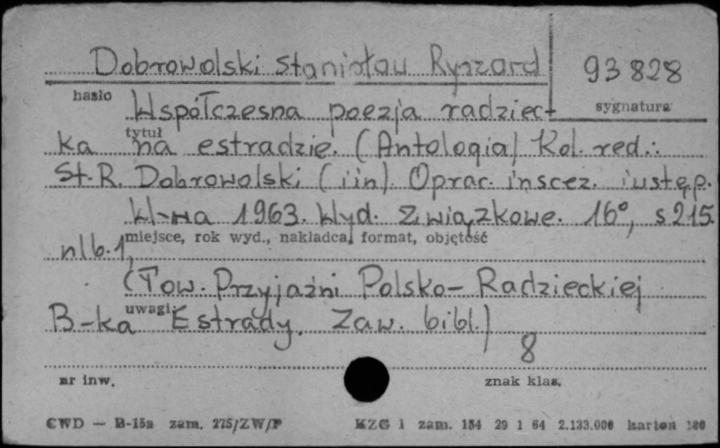 Dobrowolski Stanisław Ryszard 93 828
hasło sygnatura
Współczesna poezja radziec-
tytuł
ka na estradzie. (Antologia) Kol. red.:
St. R. Dobrowolski (i in). Oprac. inscez. i wstęp.
W-wa 1963. Wyd. Związkowe. 16°, s 215.
miejsce, rok wyd., nakładca, format, objętość
nlb. 1,
(Tow. Przyjaźni Polsko-Radzieckiej
uwagi
B-ka Estrady. Zaw. bibl.)
8
nr inw. znak klas.
CWD — B-15a zam. 275/ZW/P KZG 1 zam. 154 29 1 64 2.133.000 karton